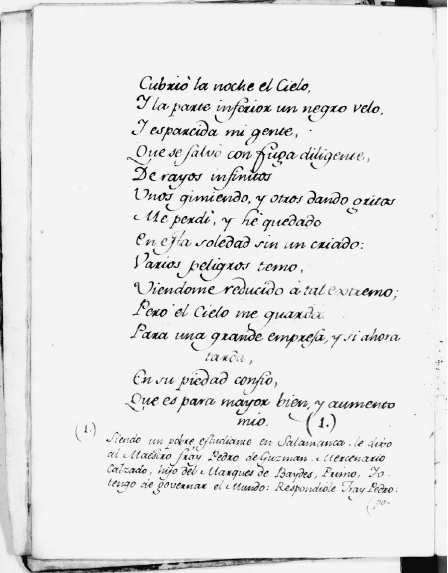 Cubriò la noche el Cielo,
Y la parte inferior un negro velo,
Y esparcida mi gente,
Que se salvò con fuga diligente,
De rayos infinitos
Unos gimiendo, y otros dando gritos
Me perdi, y hè quedado
En esta soledad sin un criado:
Varios peligros temo,
Viendome reducido à tal extremo;
Pero el Cielo me guarda
Para una grande empresa, y si ahora
tarda,
En su piedad confio,
Que es para mayor bien, y aumento
mio. (1.)
(1.) Siendo un pobre estudiante en Salamanca, le dixo
al Maestro fray Pedro de Guzman, Mercenario
Calzado, hijo del Marques de Baydes, Primo, Yo
tengo de governar el Mundo: Respondiole Fray Pedro:
(po-